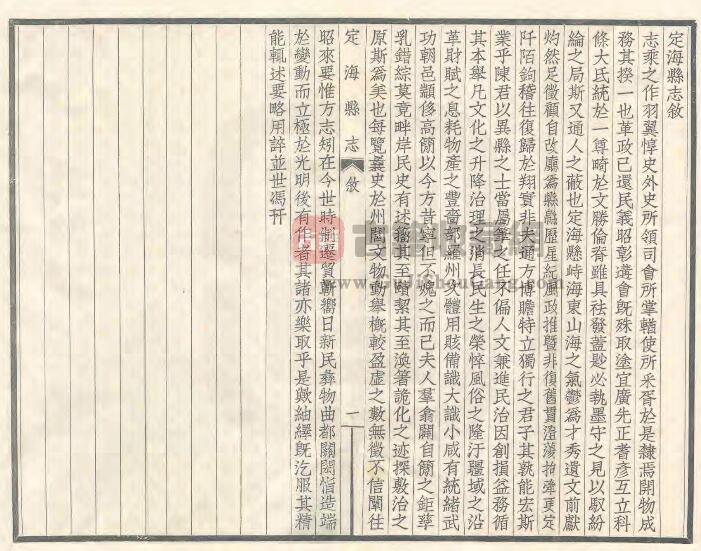 定海縣志敘
志乘之作羽翼惇史外史所領司會所掌輶使所釆胥於是隸焉開物成
務其揆一也革政已還民義昭彰遺會旣殊取塗宜廣先正耆彥互立科
條大氐統於一尊畸於文勝倫脊雖具祛發蓋尟必執墨守之見以馭紛
綸之局斯又通人之蔽也定海縣峙海東山海之氣鬱爲才秀遺文前獻
灼然足徵顧自改廳爲縣縣歷星紀風政推暨非復舊貫澄蕩拾肄更定
阡陌鉤稽往復歸於翔實非夫通方博贍特立獨行之君子其孰能宏斯
業乎陳君以異縣之士當屬筆之任不偏人文兼進民治因創損益務循
其本舉凡文化之升降治理之消長民生之榮悴風俗之隆汙疆域之沿
革財賦之息耗物產之豐嗇部羅州次體用賅備識大識小咸有統緒武
功朝邑顓侈高簡以今方昔寧但不媿之而已夫人羣翕闢自簡之鉅蕃
乳錯綜莫竟畔岸民史有述搐其至賾絜其至渙箸詭化之迹探敷治之
原斯爲美也每覽曩史於州閭文物動舉概較盈虛之數無徵不信闡往
定海縣志 敘 一
昭來要惟方志矧在今世時制遷貿斬嚮日新民彝物曲都關閎恉造端
於變動而立極於光明後有作者其諸亦樂取乎是歟紬繹旣汔服其精
能輒述要略用誶並世馮幵